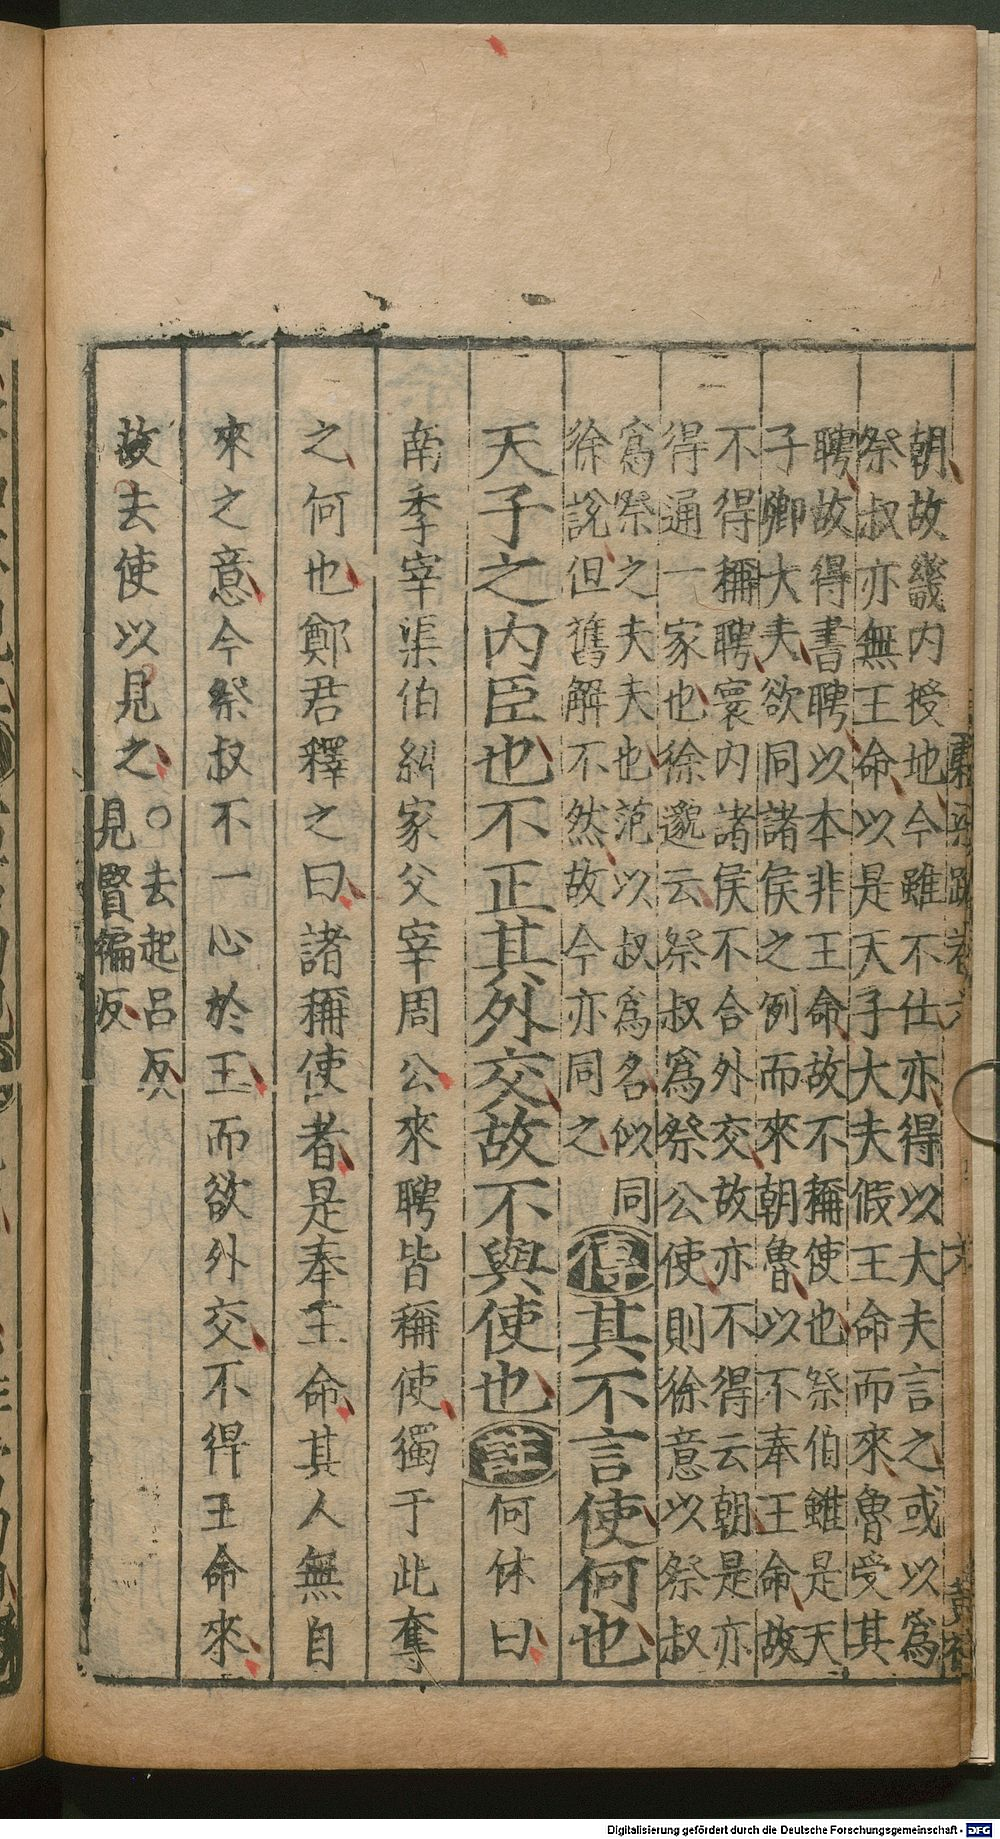 朝故畿内授地今雖不仕亦得以大夫言之或以爲
祭叔亦無王命以是天子大夫假王命而來魯受其
聘故得書聘以本非王命故不稱使也祭伯雖是天
子卿大夫欲同諸侯之例而來朝魯以不奉王命故
不得稱聘寰内諸侯不合外交故亦不得云朝是亦
得通一家也徐邈云祭叔爲祭公使則徐意以祭叔
爲祭之大夫也范以叔爲名似同
徐説但舊解不然故今亦同之
傳其不言使何也
天子之内臣也不正其外交故不與使也註何休曰
南季宰渠伯糾家父宰周公來聘皆稱使獨于此奪
之何也鄭君釋之曰諸稱使者是奉王命其人無自
來之意今祭叔不一心於王而欲外交不得王命來
故去使以見之○去起吕反
見賢徧反
Digitalisierung gefördert durch die Deutsche Forschungsgemeinschaft - DFG